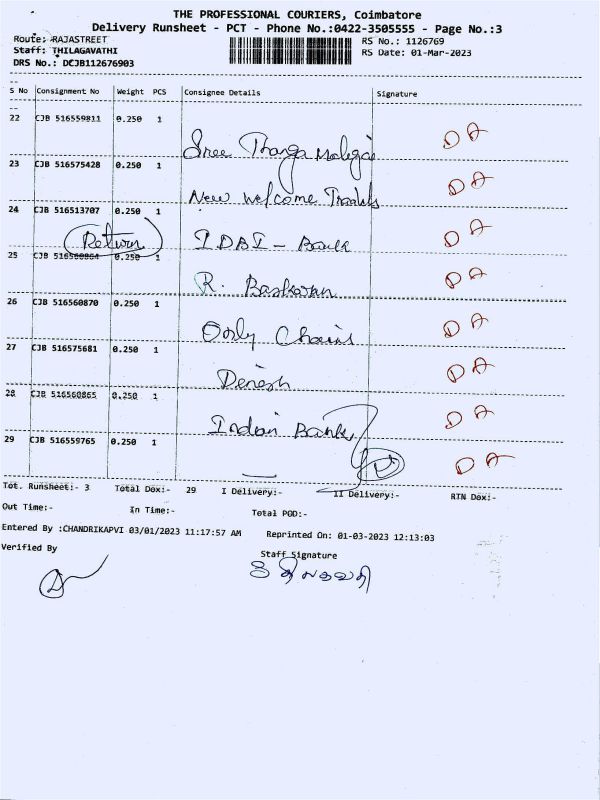 THE PROFESSIONAL COURIERS, Coimbatore
Delivery Runsheet - PCT - Phone No.:0422-3505555 - Page No.:3
Route: RAJASTREET
RS No.: 1126769
Staff: THILAGAVATHI
RS Date: 01-Mar-2023
DRS No.: DCJB112676903
S No Consignment No Weight PCS Consignee Details Signature
22 CJB 516559811 0.250 1
Sree Thanga D A
23 CJB 516575428 0.250 1
New Welcome D A
24 CJB 516513707 0.250 1
Return IDBI - Bank D A
25 CJB 0.250 1
R. Baskaran D A
26 CJB 516560870 0.250 1
Only Chains D A
27 CJB 516575681 0.250 1
Dinesh D A
28 CJB 516560865 0.250 1
Indian Bank D A
29 CJB 516559765 0.250 1
D A
Tot. Runsheet:- 3 Total Dox:- 29 I Delivery:- II Delivery:- RTN Dox:-
Out Time:- In Time:- Total POD:-
Entered By :CHANDRIKAPVI 03/01/2023 11:17:57 AM Reprinted On: 01-03-2023 12:13:03
Verified By Staff Signature